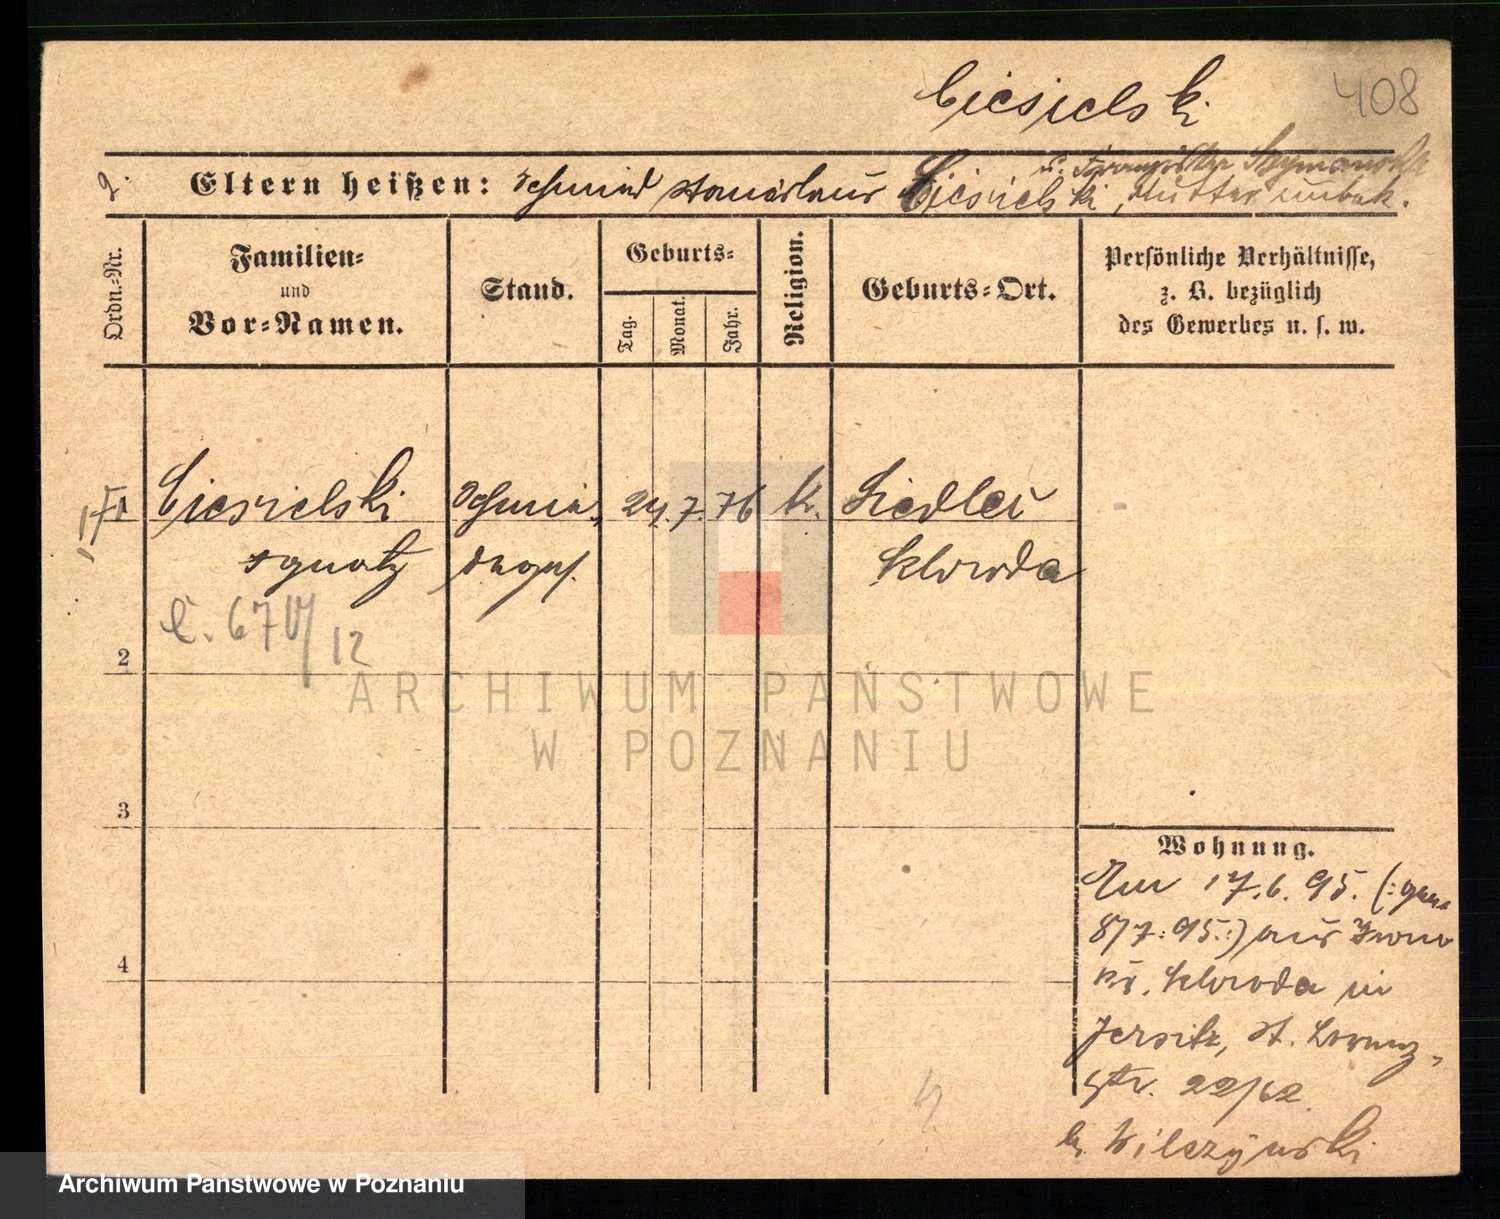 Ciesielski
408
2. Eltern heißen: Schmied Stanislaus Ciesielski, Mutter unbek.
u. Szymanoska
Ordn.-Nr.
Familien-
und
Vor-Namen.
Stand.
Geburts-
Tag.
Monat.
Jahr.
Religion.
Geburts-Ort.
Persönliche Verhältnisse,
z. B. bezüglich
des Gewerbes u. s. w.
Ciesielski Schmie- 24. 7. 76 k. Siedlec
Ignatz Schroda
C. 67 IV/12
2
3
4
Wohnung.
Am 17.6.95. (:gem.
8/7.95.:) aus
Kr. Schroda in
Jersitz, St. Lorenz-
str. 22/62
b. Wilczynski
ARCHIWUM PAŃSTWOWE
W POZNANIU
Archiwum Państwowe w Poznaniu